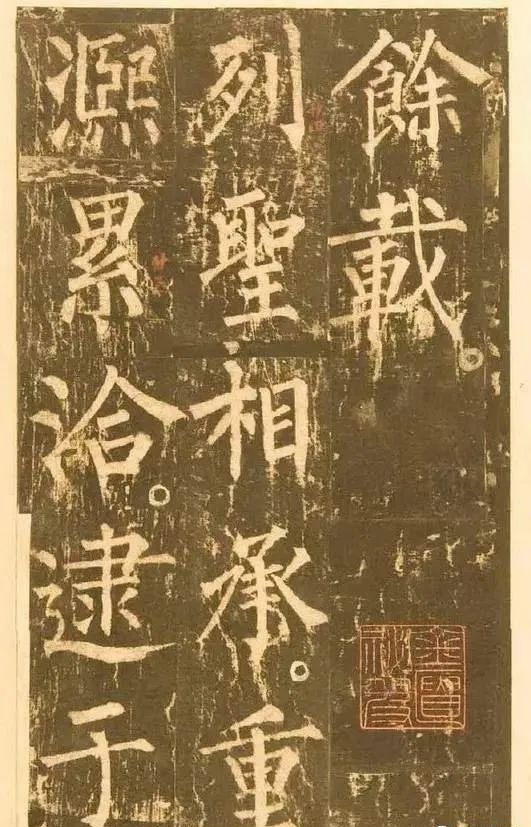 餘載
列聖相承重
凞累洽逮于